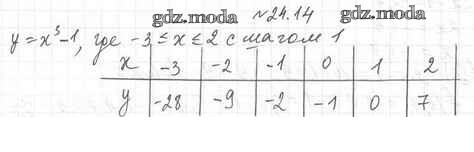 gdz.moda №24.14 gdz.moda
y = x³-1, где -3 ≤ x ≤ 2 с шагом 1
x -3 -2 -1 0 1 2
y -28 -9 -2 -1 0 7